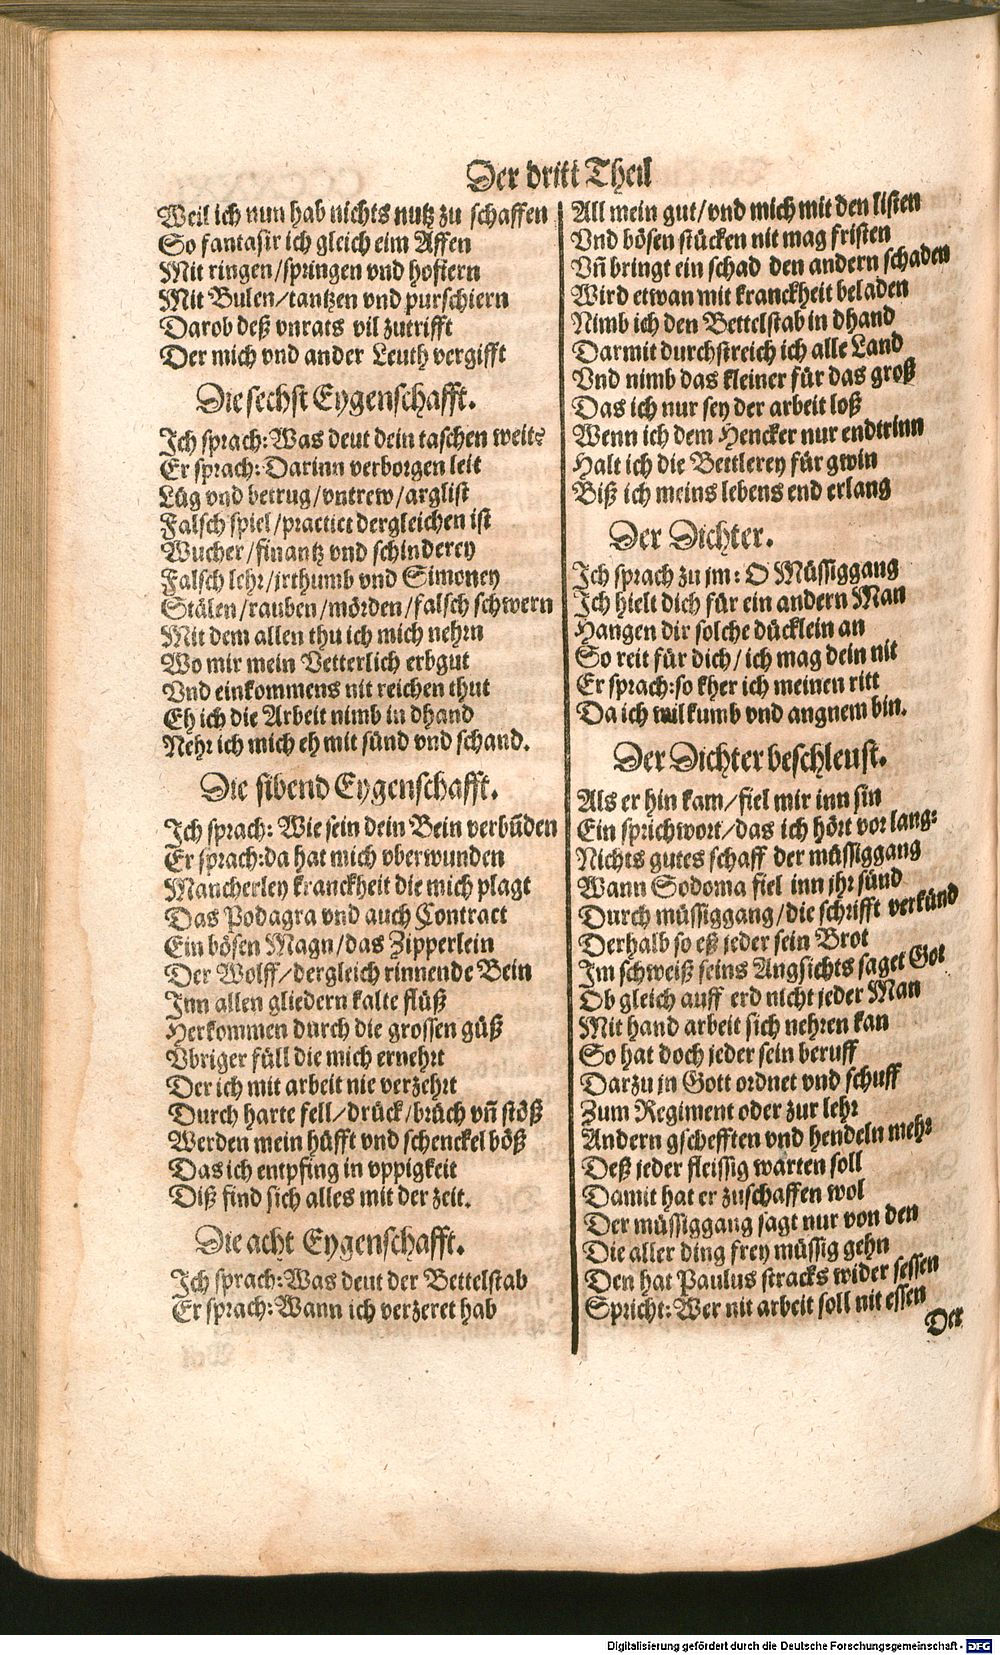 Der dritt Theil
Weil ich nun hab nichts nutz zu schaffen
So fantasir ich gleich eim Affen
Mit ringen/springen vnd hofiern
Mit Bulen/tantzen vnd purschiern
Darob deß vnrats vil zutrifft
Der mich vnd ander Leuth vergifft
Die sechst Eygenschafft.
Ich sprach: Was deut dein taschen weit?
Er sprach: Darinn verborgen leit
Lüg vnd betrug/vntrew/arglist
Falsch spiel/practict dergleichen ist
Wucher/finantz vnd schinderey
Falsch lehr/irthumb vnd Simoney
Stälen/rauben/mörden/falsch schwern
Mit dem allen thu ich mich nehrn
Wo mir mein Vetterlich erbgut
Vnd einkommens nit reichen thut
Eh ich die Arbeit nimb in dhand
Nehr ich mich eh mit sünd vnd schand.
Die sibend Eygenschafft.
Ich sprach: Wie sein dein Bein verbũden
Er sprach:da hat mich vberwunden
Mancherley kranckheit die mich plagt
Das Podagra vnd auch Contract
Ein bösen Magn/das Zipperlein
Der Wolff/dergleich rinnende Bein
Inn allen gliedern kalte flüß
Herkommen durch die grossen güß
Vbriger füll die mich ernehrt
Der ich mit arbeit nie verzehrt
Durch harte fell/drück/brüch vñ stöß
Werden mein hüfft vnd schenckel böß
Das ich entpfing in vppigkeit
Diß find sich alles mit der zeit.
Die acht Eygenschafft.
Ich sprach: Was deut der Bettelstab
Er sprach: Wann ich verzeret hab
All mein gut/vnd mich mit den listen
Vnd bösen stücken nit mag fristen
Vñ bringt ein schad den andern schaden
Wird etwan mit kranckheit beladen
Nimb ich den Bettelstab in dhand
Darmit durchstreich ich alle Land
Vnd nimb das kleiner für das groß
Das ich nur sey der arbeit loß
Wenn ich dem Hencker nur endtrinn
Halt ich die Bettlerey für gwin
Biß ich meins lebens end erlang
Der Dichter.
Ich sprach zu jm: O Müssiggang
Ich hielt dich für ein andern Man
Hangen dir solche dücklein an
So reit für dich/ich mag dein nit
Er sprach:so kher ich meinen ritt
Da ich wilkumb vnd angnem bin.
Der Dichter beschleust.
Als er hin kam/fiel mir inn sin
Ein sprichwort/das ich hört vor lang:
Nichts gutes schaff der müssiggang
Wann Sodoma fiel inn jhr sünd
Durch müssiggang/die schrifft verkünd
Derhalb so eß jeder sein Brot
Im schweiß seins Angsichts saget Got
Ob gleich auff erd nicht jeder Man
Mit hand arbeit sich nehren kan
So hat doch jeder sein beruff
Darzu jn Gott ordnet vnd schuff
Zum Regiment oder zur lehr
Andern gschefften vnd hendeln mehr
Deß jeder fleissig warten soll
Damit hat er zuschaffen wol
Der müssiggang sagt nur von den
Die aller ding frey müssig gehn
Den hat Paulus stracks wider sessen
Spricht: Wer nit arbeit soll nit essen
Der
Digitalisierung gefördert durch die Deutsche Forschungsgemeinschaft - DFG